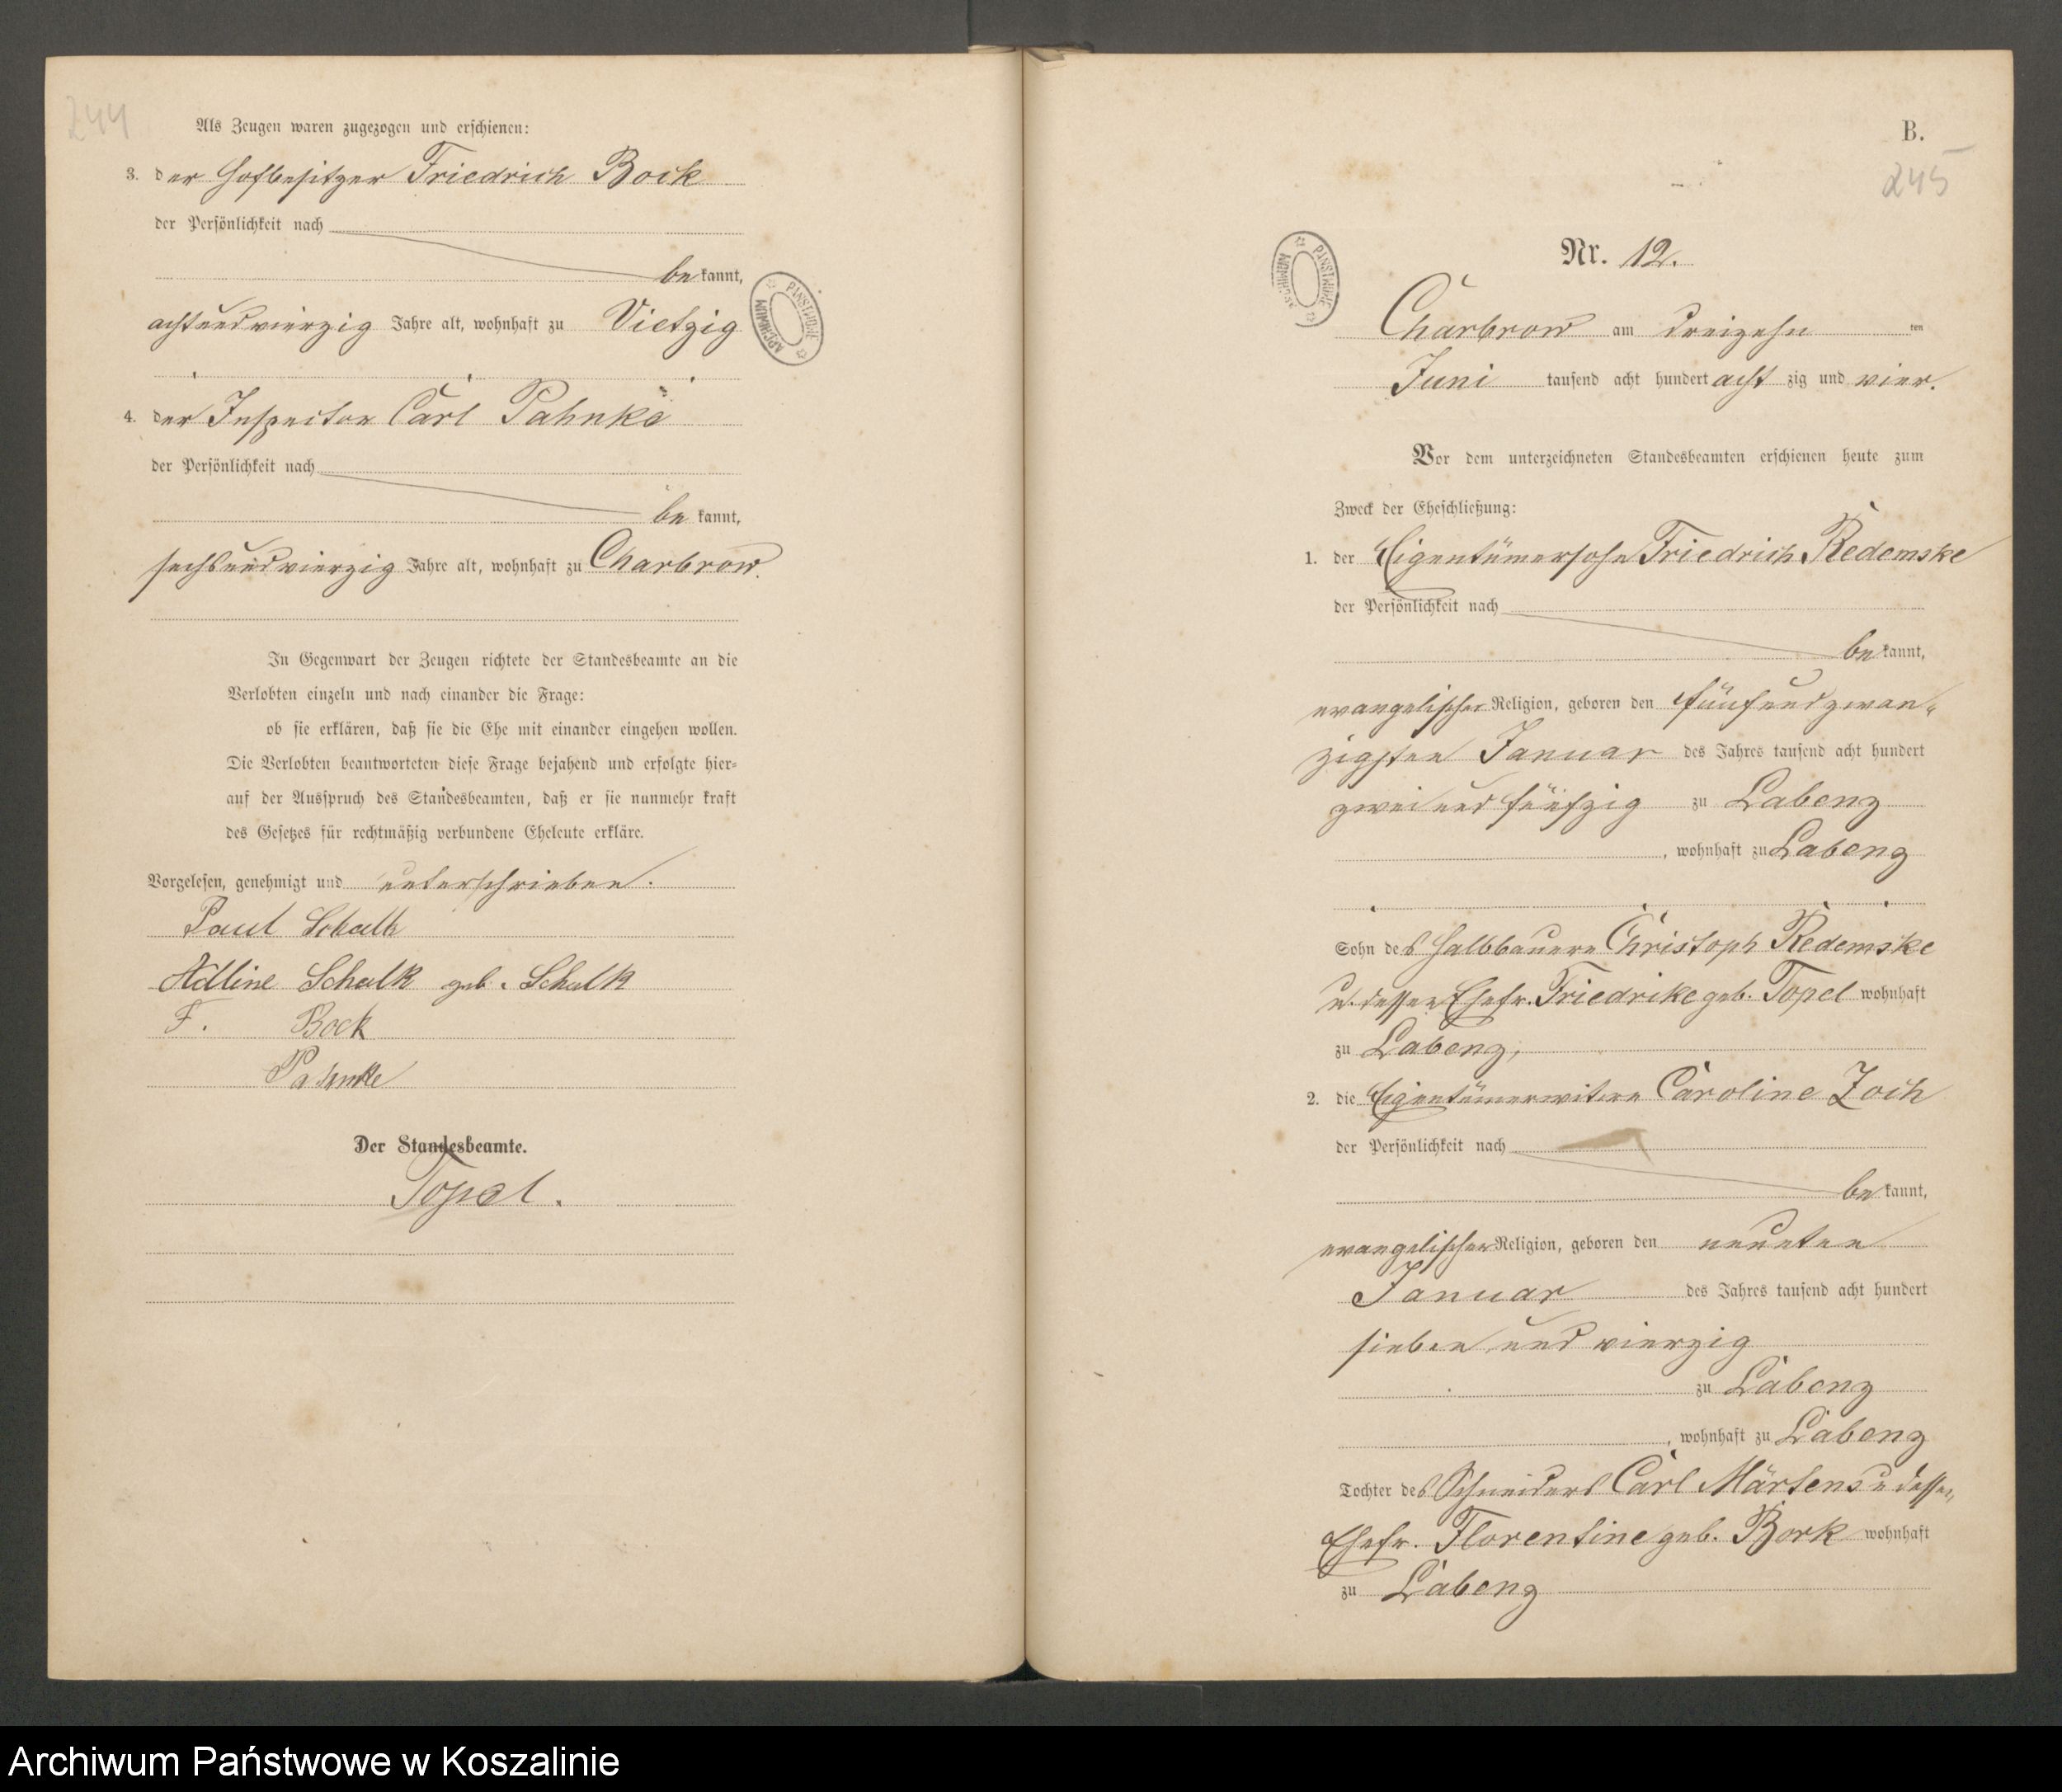 244
Als Zeugen waren zugezogen und erschienen:
3. der Hofbesitzer Friedrich Bock
der Persönlichkeit nach
bekannt,
achtundvierzig Jahre alt, wohnhaft zu Vietzig
4. der Inspector Carl Pahnke
der Persönlichkeit nach
be kannt,
sechsundvierzig Jahre alt, wohnhaft zu Charbrow.
In Gegenwart der Zeugen richtete der Standesbeamte an die
Verlobten einzeln und nach einander die Frage:
ob sie erklären, daß sie die Ehe mit einander eingehen wollen.
Die Verlobten beantworteten diese Frage bejahend und erfolgte hier-
auf der Ausspruch des Standesbeamten, daß er sie nunmehr kraft
des Gesetzes für rechtmäßig verbundene Eheleute erkläre.
Vorgelesen, genehmigt und unterschrieben.
Paul Schalk
Adline Schalk geb. Schalk
F. Bock
Pahnke
Der Standesbeamte.
Topel.
ARCHIWUM PAŃSTWOWE
B.
245
ARCHIWUM PAŃSTWOWE
Nr. 12.
Charbrow am dreizehn ten
Juni tausend acht hundert acht zig und vier.
Vor dem unterzeichneten Standesbeamten erschienen heute zum
Zweck der Eheschließung:
1. der Eigentümersohn Friedrich Redemske
der Persönlichkeit nach
be kannt,
evangelischer Religion, geboren den fünfundzwan-
zigsten Januar des Jahres tausend acht hundert
zweiundfünfzig zu Labenz
, wohnhaft zu Labenz
Sohn des Halbbauern Christoph Redemske
u. dessen Ehefr. Friedrike geb. Topel wohnhaft
zu Labenz,
2. die Eigentümerwitwe Caroline Zoch
der Persönlichkeit nach
be kannt,
evangelischer Religion, geboren den neunten
Januar des Jahres tausend acht hundert
sieben und vierzig
zu Labenz
, wohnhaft zu Labenz
Tochter des Schneiders Carl Märtens u dessen
Ehefr. Florentine geb. Bork wohnhaft
zu Labenz
Archiwum Państwowe w Koszalinie